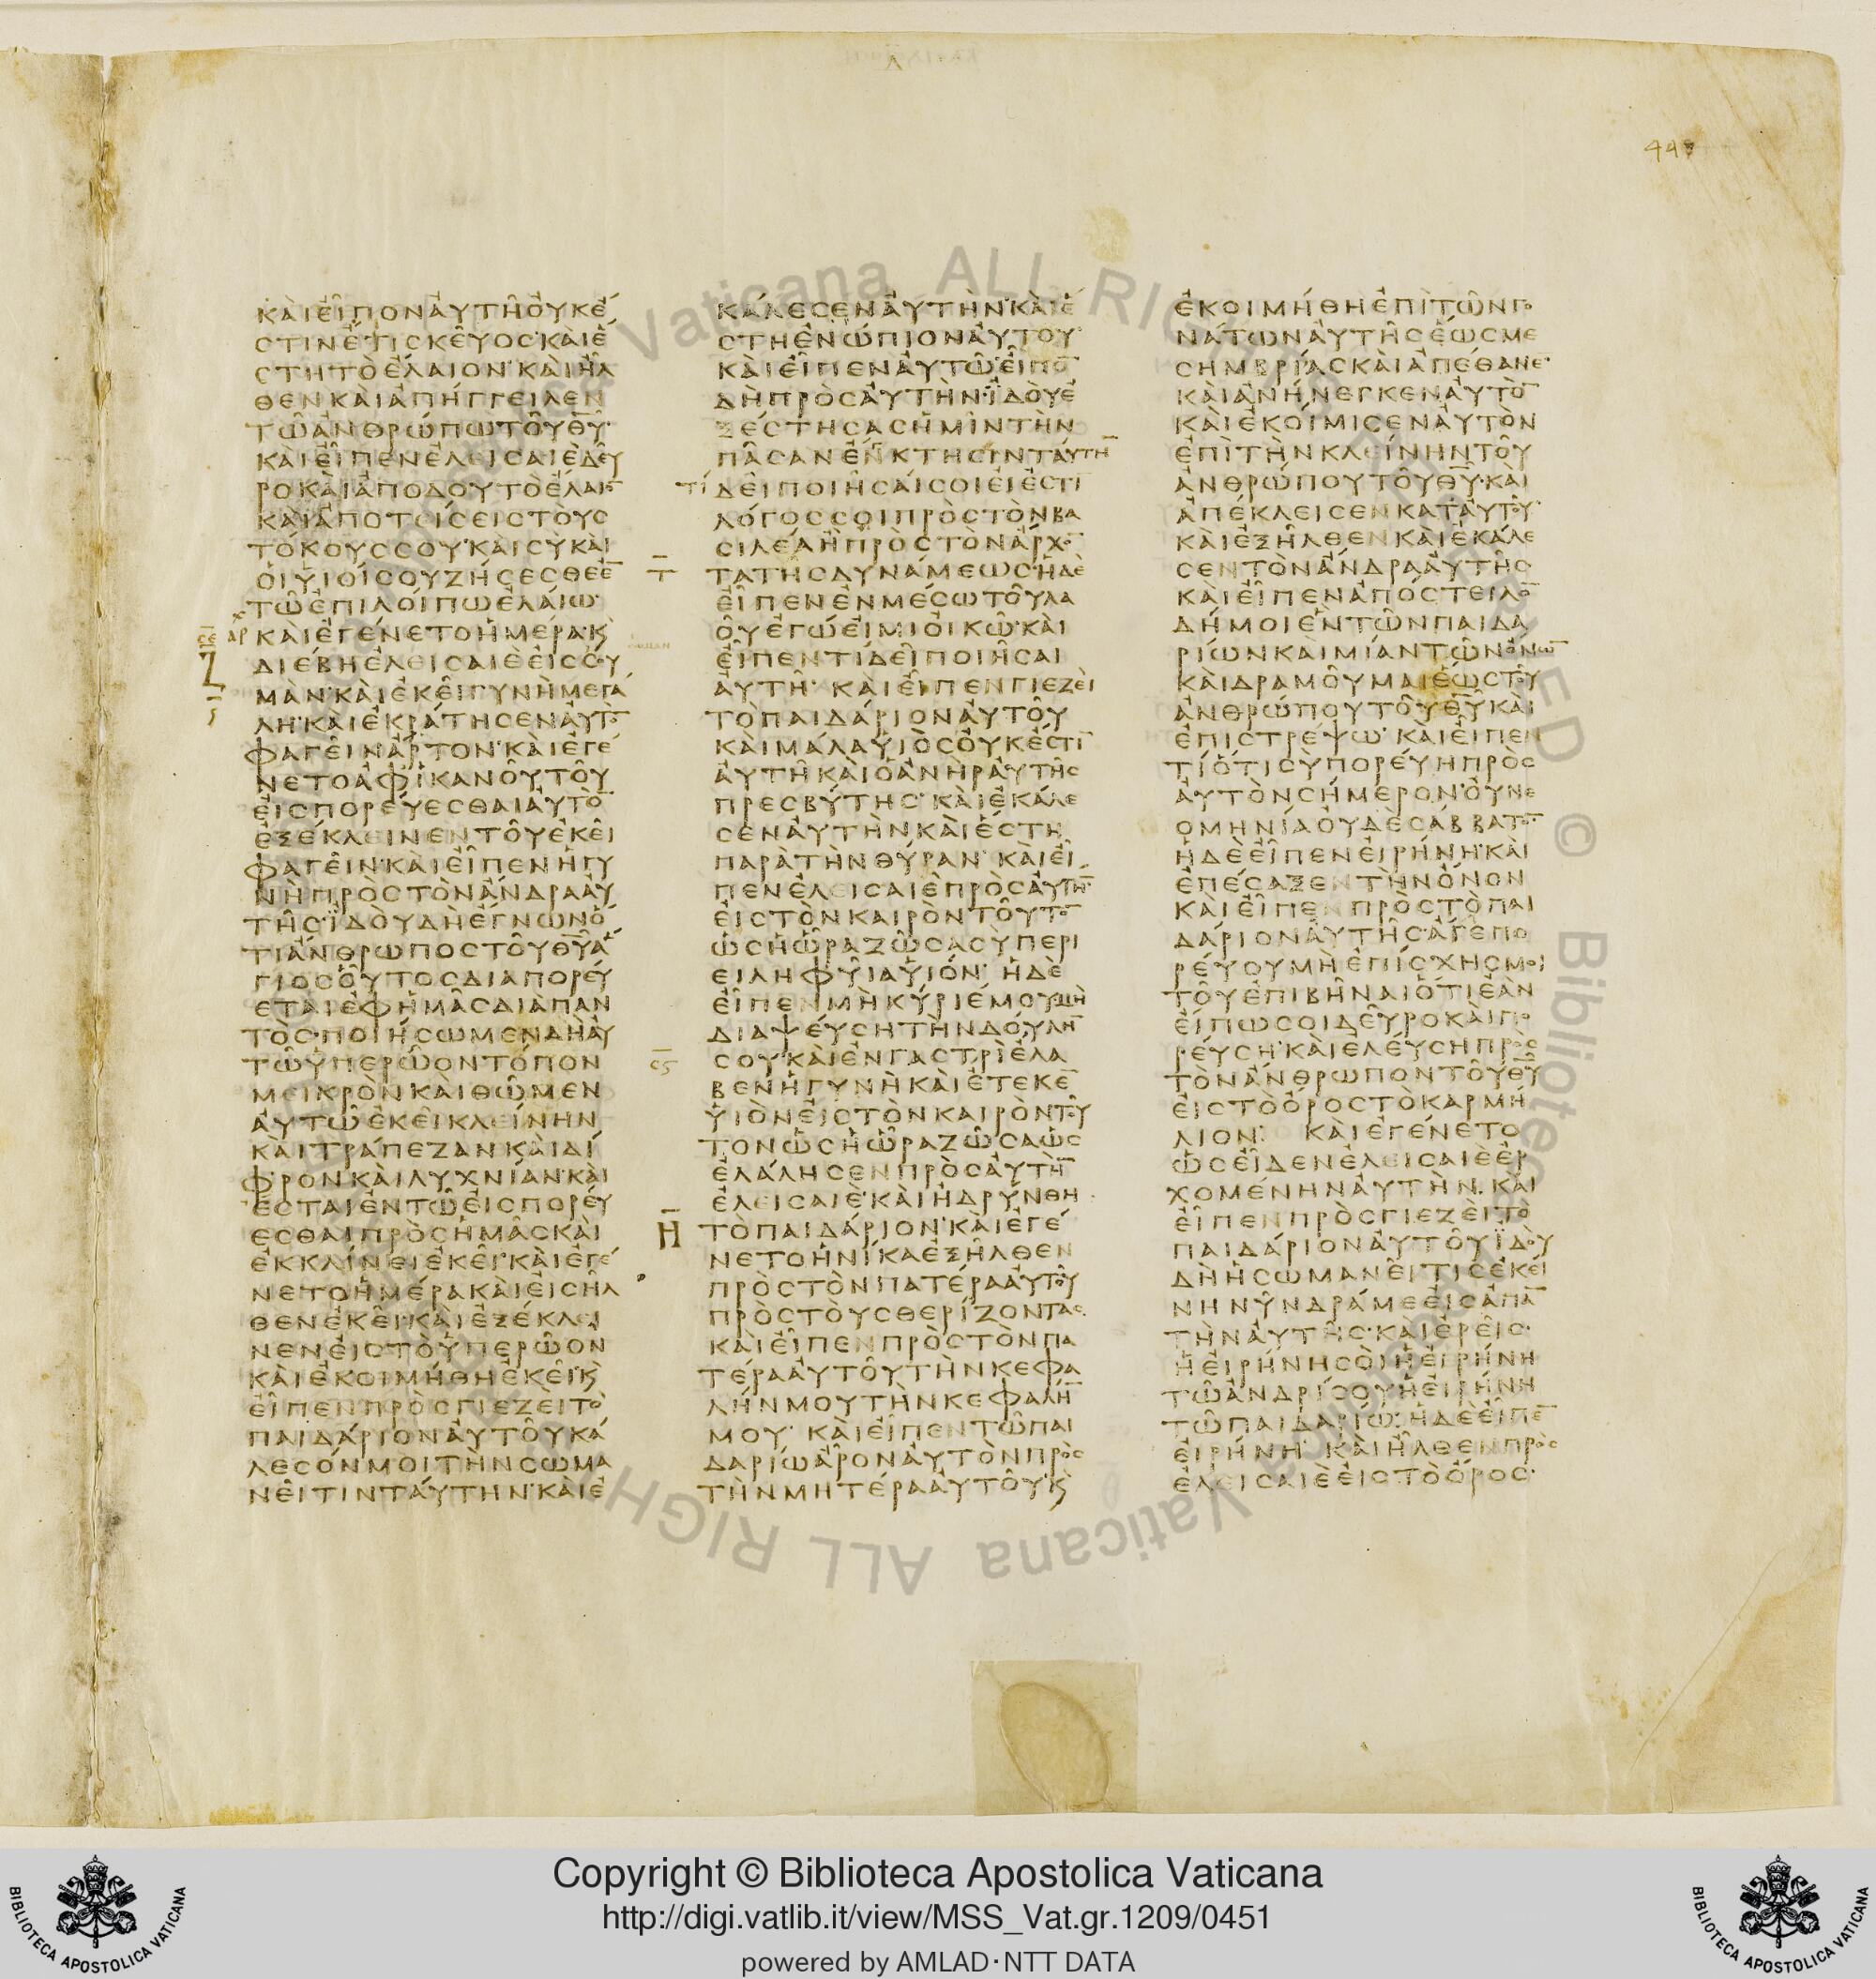 447
ΚΑΙΕΙΠΟΝΑΥΤΗΟΥΚΕ
ΣΤΙΝΕΤΙΣΚΕΥΟΣ·ΚΑΙΕ
ΣΤΗΤΟΕΛΑΙΟΝ·ΚΑΙΗΛ
ΘΕΝΚΑΙΑΠΗΓΓΕΙΛΕΝ
ΤΩΑΝΘΡΩΠΩΤΟΥΘΥ·
ΚΑΙΕΙΠΕΝΕΛΕΙΣΑΙΕΔΕΥ
ΡΟΚΑΙΑΠΟΔΟΥΤΟΕΛΑΙΟ̅
ΚΑΙΑΠΟΤΕΙΣΕΙΣΤΟΥΣ
ΤΟΚΟΥΣΣΟΥ·ΚΑΙΣΥΚΑΙ
ΟΙΥΙΟΙΣΟΥΖΗΣΕΣΘΕΕ̅
ΤΩΕΠΙΛΟΙΠΩΕΛΑΙΩ·
ΚΑΙΕΓΕΝΕΤΟΗΜΕΡΑ·Κ̀
ΔΙΕΒΗΕΛΕΙΣΑΙΕΕΙΣΣΟΥ
ΜΑΝ·ΚΑΙΕΚΕΙΓΥΝΗΜΕΓΑ
ΛΗ·ΚΑΙΕΚΡΑΤΗΣΕΝΑΥΤΟ̅
ΦΑΓΕΙΝΑΡΤΟΝ·ΚΑΙΕΓΕ
ΝΕΤΟΑΦΙΚΑΝΟΥΤΟΥ
ΕΙΣΠΟΡΕΥΕΣΘΑΙΑΥΤΟ̅
ΕΞΕΚΛΕΙΝΕΝΤΟΥΕΚΕΙ
ΦΑΓΕΙΝ·ΚΑΙΕΙΠΕΝΗΓΥ
ΝΗΠΡΟΣΤΟΝΑΝΔΡΑΑΥ
ΤΗΣ·ΪΔΟΥΔΗΕΓΝΩΝΟ
ΤΙΑΝΘΡΩΠΟΣΤΟΥΘΥΑ
ΓΙΟΣΟΥΤΟΣΔΙΑΠΟΡΕΥ
ΕΤΑΙΕΦΗΜΑΣΔΙΑΠΑΝ
ΤΟΣ·ΠΟΙΗΣΩΜΕΝΔΗΑΥ
ΤΩΥΠΕΡΩΟΝΤΟΠΟΝ
ΜΕΙΚΡΟΝΚΑΙΘΩΜΕΝ
ΑΥΤΩΕΚΕΙΚΛΕΙΝΗΝ
ΚΑΙΤΡΑΠΕΖΑΝΚΑΙΔΙ
ΦΡΟΝΚΑΙΛΥΧΝΙΑΝ·ΚΑΙ
ΕΣΤΑΙΕΝΤΩΕΙΣΠΟΡΕΥ
ΕΣΘΑΙΠΡΟΣΗΜΑΣΚΑΙ
ΕΚΚΛΙΝΕΙΕΚΕΙ·ΚΑΙΕΓΕ
ΝΕΤΟΗΜΕΡΑΚΑΙΕΙΣΗΛ
ΘΕΝΕΚΕΙ·ΚΑΙΕΞΕΚΛΕΙ
ΝΕΝΕΙΣΤΟΥΠΕΡΩΟΝ
ΚΑΙΕΚΟΙΜΗΘΗΕΚΕΙ·Κ̀
ΕΙΠΕΝΠΡΟΣΓΙΕΖΕΙΤΟ
ΠΑΙΔΑΡΙΟΝΑΥΤΟΥΚΑ
ΛΕΣΟΝΜΟΙΤΗΝΣΩΜΑ
ΝΕΙΤΙΝΤΑΥΤΗΝ·ΚΑΙΕ
ΚΑΛΕΣΕΝΑΥΤΗΝ·ΚΑΙΕ
ΣΤΗΕΝΩΠΙΟΝΑΥΤΟΥ·
ΚΑΙΕΙΠΕΝΑΥΤΩ·ΕΙΠΟ̅
ΔΗΠΡΟΣΑΥΤΗΝ·ΪΔΟΥΕ
ΞΕΣΤΗΣΑΣΗΜΙΝΤΗΝ
ΠΑΣΑΝΕΚΣΤΑΣΙΝΤΑΥΤΗ̅
ΤΙΔΕΙΠΟΙΗΣΑΙΣΟΙΕΙΕΣΤΙ
ΛΟΓΟΣΣΟΙΠΡΟΣΤΟΝΒΑ
ΣΙΛΕΑΗΠΡΟΣΤΟΝΑΡΧΟ̅
ΤΑΤΗΣΔΥΝΑΜΕΩΣ·ΗΔΕ
ΕΙΠΕΝΕΝΜΕΣΩΤΟΥΛΑ
ΟΥΕΓΩΕΙΜΙΟΙΚΩ·ΚΑΙ
ΕΙΠΕΝΤΙΔΕΙΠΟΙΗΣΑΙ
ΑΥΤΗ· ΚΑΙΕΙΠΕΝΓΙΕΖΕΙ
ΤΟΠΑΙΔΑΡΙΟΝΑΥΤΟΥ
ΚΑΙΜΑΛΑΥΙΟΣΟΥΚΕΣΤΙ̅
ΑΥΤΗΚΑΙΟΑΝΗΡΑΥΤΗΣ
ΠΡΕΣΒΥΤΗΣ·ΚΑΙΕΚΑΛΕ
ΣΕΝΑΥΤΗΝΚΑΙΕΣΤΗ
ΠΑΡΑΤΗΝΘΥΡΑΝ· ΚΑΙΕΙ
ΠΕΝΕΛΕΙΣΑΙΕΠΡΟΣΑΥΤΗ̅·
ΕΙΣΤΟΝΚΑΙΡΟΝΤΟΥΤΟ̅
ΩΣΗΩΡΑΖΩΣΑΣΥΠΕΡΙ
ΕΙΛΗΦΥΙΑΥΙΟΝ· ΗΔΕ
ΕΙΠΕΝΜΗΚΥΡΙΕΜΟΥΜΗ
ΔΙΑΨΕΥΣΗΤΗΝΔΟΥΛΗ̅
ΣΟΥ·ΚΑΙΕΝΓΑΣΤΡΙΕΛΑ
ΒΕΝΗΓΥΝΗΚΑΙΕΤΕΚΕ̅
ΥΙΟΝΕΙΣΤΟΝΚΑΙΡΟΝΤΟΥ
ΤΟΝΩΣΗΩΡΑΖΩΣΑΩΣ
ΕΛΑΛΗΣΕΝΠΡΟΣΑΥΤΗ̅
ΕΛΕΙΣΑΙΕ·ΚΑΙΗΔΡΥΝΘΗ
Η ΤΟΠΑΙΔΑΡΙΟΝ·ΚΑΙΕΓΕ
ΝΕΤΟΗΝΙΚΑΕΞΗΛΘΕΝ
ΠΡΟΣΤΟΝΠΑΤΕΡΑΑΥΤΟΥ
ΠΡΟΣΤΟΥΣΘΕΡΙΖΟΝΤΑΣ
ΚΑΙΕΙΠΕΝΠΡΟΣΤΟΝΠΑ
ΤΕΡΑΑΥΤΟΥΤΗΝΚΕΦΑ
ΛΗΝΜΟΥΤΗΝΚΕΦΑΛΗ̅
ΜΟΥ· ΚΑΙΕΙΠΕΝΤΩΠΑΙ
ΔΑΡΙΩΑΡΟΝΑΥΤΟΝΠΡΟΣ
ΤΗΝΜΗΤΕΡΑΑΥΤΟΥ·Κ̀
ΕΚΟΙΜΗΘΗΕΠΙΤΩΝΓΟ
ΝΑΤΩΝΑΥΤΗΣΕΩΣΜΕ
ΣΗΜΒΡΙΑΣΚΑΙΑΠΕΘΑΝΕ·
ΚΑΙΑΝΗΝΕΓΚΕΝΑΥΤΟ̅
ΚΑΙΕΚΟΙΜΙΣΕΝΑΥΤΟΝ
ΕΠΙΤΗΝΚΛΕΙΝΗΝΤΟΥ
ΑΝΘΡΩΠΟΥΤΟΥΘΥ·ΚΑΙ
ΑΠΕΚΛΕΙΣΕΝΚΑΤΑΥΤΟΥ·
ΚΑΙΕΞΗΛΘΕΝΚΑΙΕΚΑΛΕ
ΣΕΝΤΟΝΑΝΔΡΑΑΥΤΗΣ
ΚΑΙΕΙΠΕΝΑΠΟΣΤΕΙΛΟ̅
ΔΗΜΟΙΕΝΤΩΝΠΑΙΔΑ
ΡΙΩΝΚΑΙΜΙΑΝΤΩΝΟΝΩ̅
ΚΑΙΔΡΑΜΟΥΜΑΙΕΩΣΤΟΥ
ΑΝΘΡΩΠΟΥΤΟΥΘΥΚΑΙ
ΕΠΙΣΤΡΕΨΩ· ΚΑΙΕΙΠΕΝ
ΤΙΟΤΙΣΥΠΟΡΕΥΗΠΡΟΣ
ΑΥΤΟΝΣΗΜΕΡΟΝ·ΟΥΝΕ
ΟΜΗΝΙΑΟΥΔΕΣΑΒΒΑΤΟ̅·
ΗΔΕΕΙΠΕΝΕΙΡΗΝΗ·ΚΑΙ
ΕΠΕΣΑΞΕΝΤΗΝΟΝΟΝ
ΚΑΙΕΙΠΕΝΠΡΟΣΤΟΠΑΙ
ΔΑΡΙΟΝΑΥΤΗΣ·ΑΓΕΠΟ
ΡΕΥΟΥΜΗΕΠΙΣΧΗΣΜΟΙ
ΤΟΥΕΠΙΒΗΝΑΙΟΤΙΕΑΝ
ΕΙΠΩΣΟΙΔΕΥΡΟΚΑΙΠΟ
ΡΕΥΣΗ·ΚΑΙΕΛΕΥΣΗΠΡΟΣ
ΤΟΝΑΝΘΡΩΠΟΝΤΟΥΘΥ
ΕΙΣΤΟΟΡΟΣΤΟΚΑΡΜΗ
ΛΙΟΝ· ΚΑΙΕΓΕΝΕΤΟ
ΩΣΕΙΔΕΝΕΛΕΙΣΑΙΕΕΡ
ΧΟΜΕΝΗΝΑΥΤΗΝ·ΚΑΙ
ΕΙΠΕΝΠΡΟΣΓΙΕΖΕΙΤΟ
ΠΑΙΔΑΡΙΟΝΑΥΤΟΥΪΔΟΥ
ΔΗΗΣΩΜΑΝΕΙΤΙΣΕΚΕΙ
ΝΗΝΥΝΔΡΑΜΕΕΙΣΑΠΑ̅
ΤΗΝΑΥΤΗΣ·ΚΑΙΕΡΕΙΣ·
ΗΕΙΡΗΝΗΣΟΙΗΕΙΡΗΝΗ
ΤΩΑΝΔΡΙΣΟΥΗΕΙΡΗΝΗ
ΤΩΠΑΙΔΑΡΙΩ·ΗΔΕΕΙΠΕ̅
ΕΙΡΗΝΗ· ΚΑΙΗΛΘΕΝΠΡΟΣ
ΕΛΕΙΣΑΙΕΕΙΣΤΟΟΡΟΣ·
Copyright © Biblioteca Apostolica Vaticana
http://digi.vatlib.it/view/MSS_Vat.gr.1209/0451
powered by AMLAD·NTT DATA
BIBLIOTECA APOSTOLICA VATICANA
BIBLIOTECA APOSTOLICA VATICANA